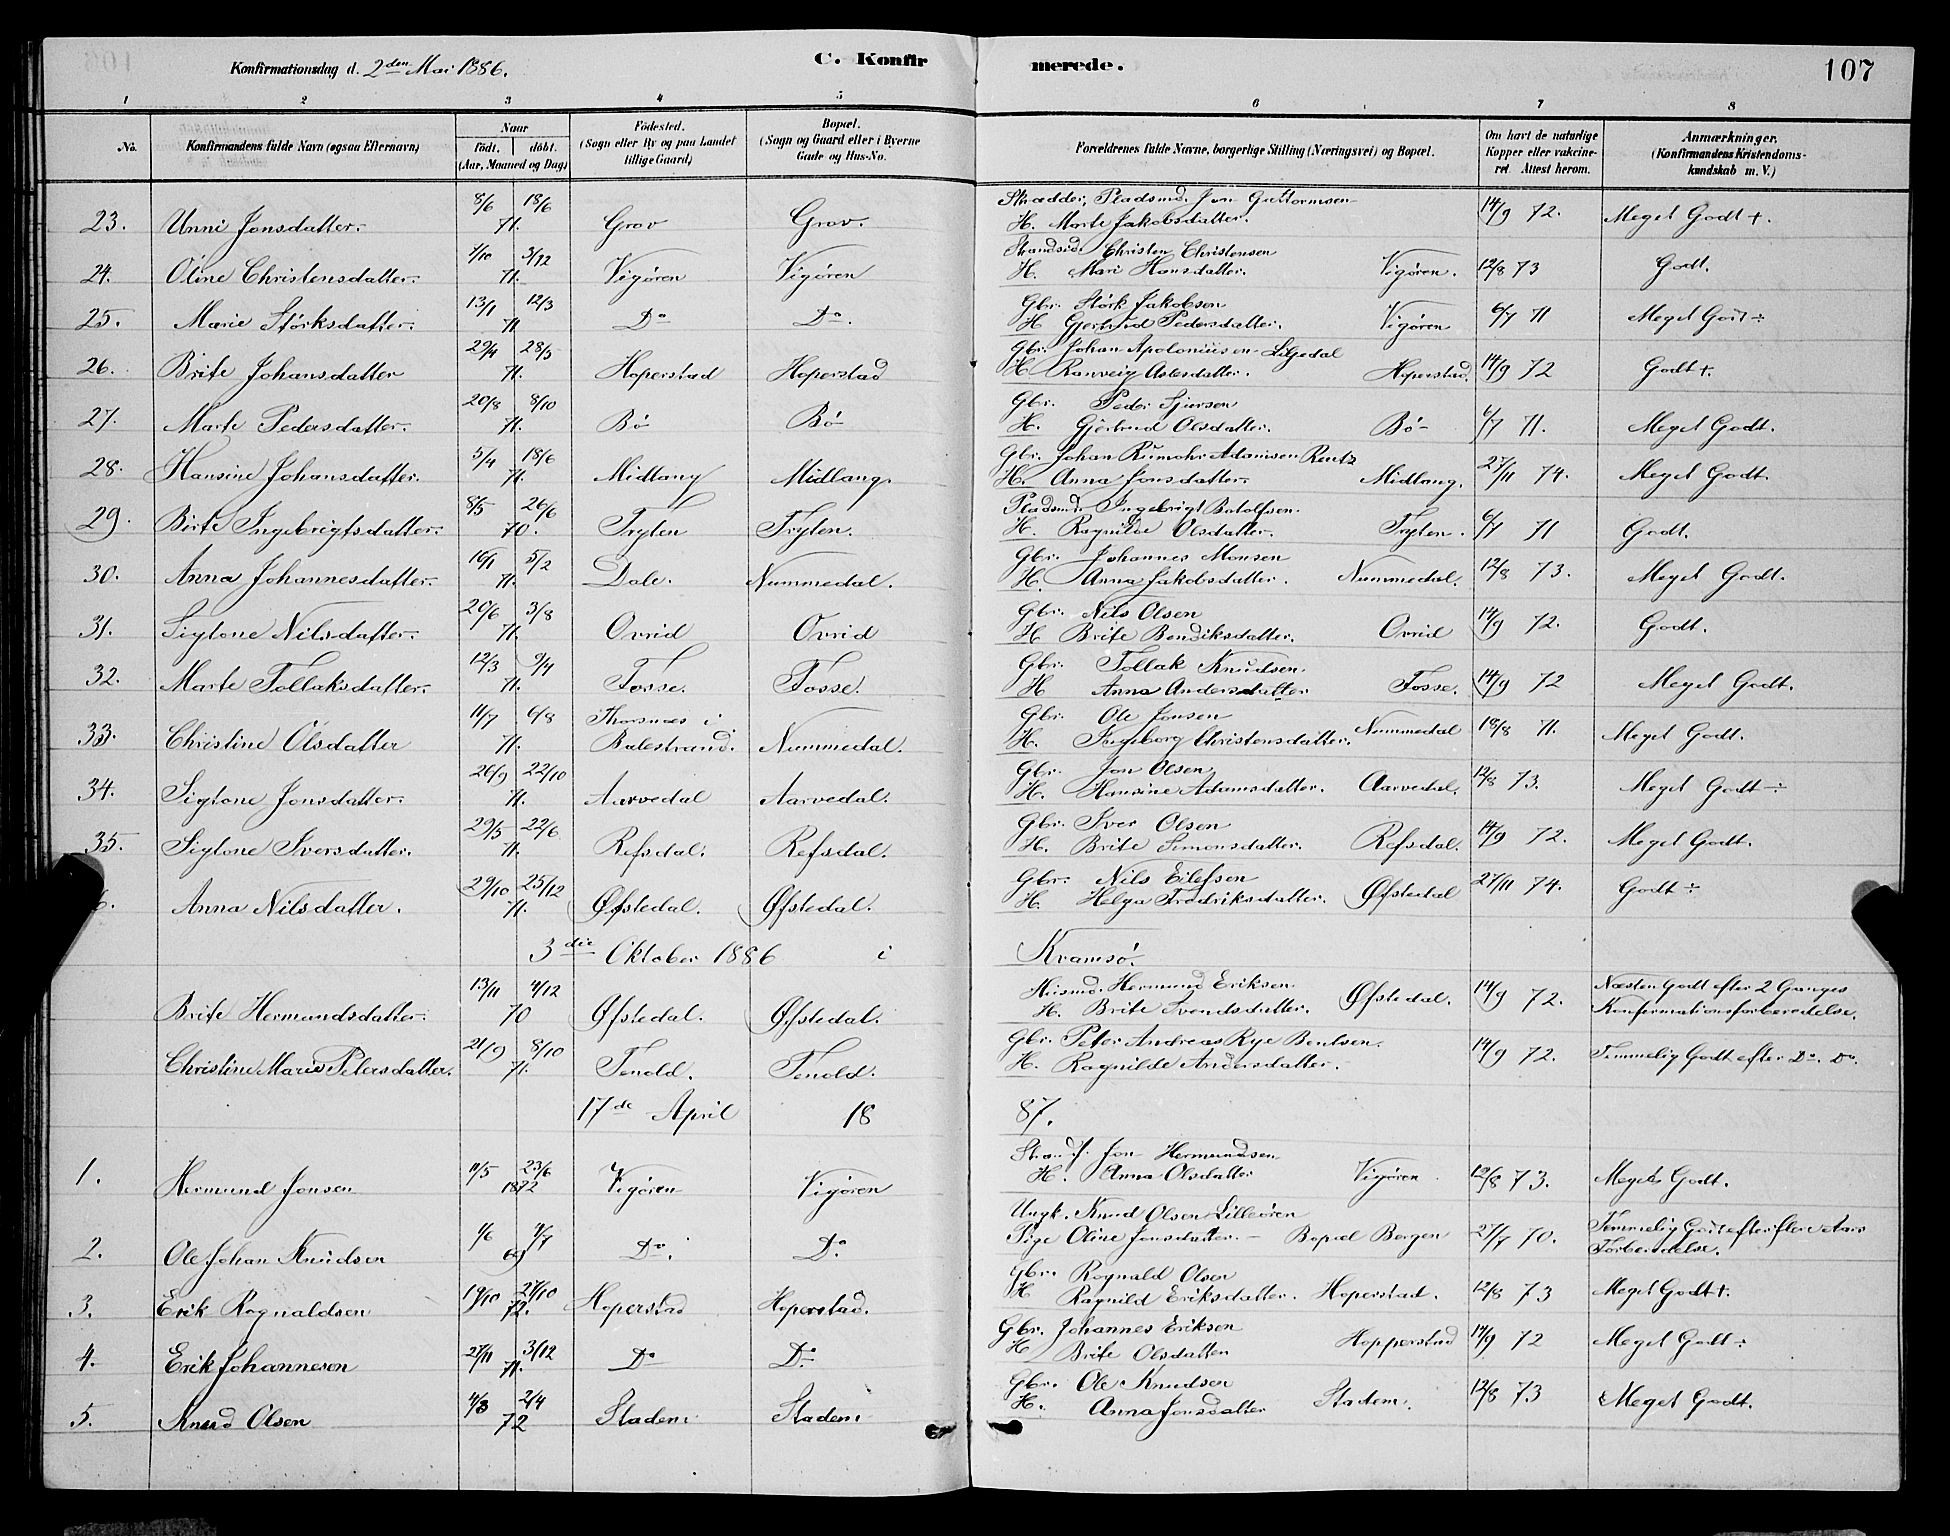 Konfirmationsdag d. 2den Mai 1886. C. Konfirmerede. 107
1 2 3 4 5 6 7 8
No. Konfirmandens fulde Navn (ogsaa Efternavn) Naar født. døbt. (Aar, Maaned og Dag) Fødested. (Sogn eller By og paa Landet tillige Gaard) Bopæl. (Sogn og Gaard eller i Byerne Gade og Hus-No. Forældrenes fulde Navne, borgerlige Stilling (Næringsvei) og Bopæl. Om havt de naturlige Kopper eller vakcineret Attest herom. Anmærkninger. (Konfirmandens Kristendomskundskab m. V.)
23. Unni Jonsdatter. 8/6 18/6 71. Grov Grov. Skrædder, Pladsmd. Jon Guttormsen H. Marte Jakobsdatter. 14/9 72. Meget Godt +.
24. Oline Christensdatter. 1/10 3/12 71. Vigøren Vigøren Strandsid. Christen Christensen H. Mari Hansdatter. Vigøren. 12/8 73 Godt.
25. Marie Størksdatter. 13/1 12/3 71 Do Do. Gbr. Størk Jakobsen H Gjertrud Pedersdatter. Vigøren 6/7 71 Meget Godt ÷
26. Brite Johansdatter 29/4 28/5 71. Hoperstad Hoperstad Gbr. Johan Apoloniusen Liljedal H. Ranveig Aslesdatter. Hoperstad. 14/9 72 Godt +.
27. Marte Pedersdatter. 20/8 8/10 71. Bø Bø Gbr. Peder Sjursen H. Gjertrud Olsdatter. Bø 6/7 71. Meget Godt.
28. Hansine Johansdatter. 5/4 18/6 71. Midlang Midlang. Gbr. Johan Rumohr Adamsen Rentz H. Anna Jonsdatter. Midlang. 27/11 74. Meget Godt.
29. Birte Ingebrigtsdatter. 8/5 26/6 70. Tryten Tryten. Pladsmd. Ingebrigt Botolfsen. H. Ragnilde Olsdatter. Tryten. 6/7 71 Godt.
30. Anna Johannesdatter. 16/1 5/2 71. Dale. Nummedal. Gbr. Johannes Monsen H. Anna Jakobsdatter. Nummedal. 12/8 73. Meget Godt.
31. Siglone Nilsdatter. 20/6 3/8 71. Ovrid Ovrid Gbr. Nils Olsen H. Brite Bendiksdatter. Ovrid 14/9 72. Godt.
32. Marte Tollaksdatter. 12/3 9/4 71. Tosse. Tosse. Gbr. Tollak Knudsen. H Anna Andersdatter Tosse. 14/9 72 Meget Godt.
33. Christine Olsdatter 11/7 6/8 71. Thorsnæs i Balestrand. Nummedal. Gbr. Ole Jonsen H. Ingeborg Christensdatter. Nummedal 18/8 71. Meget Godt.
34. Siglone Jonsdatter. 26/9 22/10 71. Aarvedal Aarvedal. Gbr. Jon Olsen H. Hansine Adamsdatter. Aarvedal. 12/8 73. Meget Godt ÷
35. Siglone Iversdatter. 29/5 22/6 71. Refsdal. Refsdal. Gbr. Iver Olsen H. Brite Simonsdatter. Refsdal. 14/9 72. Meget Godt.
6. Anna Nilsdatter. 29/10 25/12 71. Øfstedal. Øfstedal. Gbr. Nils Eilefsen H. Helga Fredriksdatter. Øfstedal 27/11 74. Godt ÷
3die Oktober 1886 i Kvamsø.
Brite Hermundsdatter. 13/11 4/12 70 Øfstedal. Øfstedal. Huusmd. Hermund Eriksen H. Brite Svendsdatter. Øfstedal. 14/9 72. Næsten Godt efter 2 Ganges Konfirmationsforberedelse.
Christine Marie Petersdatter. 21/9 8/10 71. Tenold. Tenold. Gbr. Peter Andreas Rye Bentsen. H. Ragnilde Andersdatter. 14/9 72. Temmelig Godt efter Do. Do.
17de April 1887.
1. Hermund Jonsen 11/5 23/6 1872 Vigøren Vigøren Strands. Jon Hermundsen H. Anna Olsdatter Vigøren. 12/8 73. Meget Godt.
2. Ole Johan Knudsen 1/6 4/7 69 Do. Do. Ungk. Knud Olsen Lilleøren Pige Oline Jonsdatter. – Bopæl Bergen 27/7 70. Temmelig Godt efter flere Aars Forberedelse.
3. Erik Rognaldsen 19/10 27/10 72. Hoperstad Hoperstad. Gbr. Rognald Olsen H Ragnild Eriksdatter. Hoperstad. 12/8 73 Meget Godt +.
4. Erik Johannesen 27/11 3/12 71. Do Do. Gbr. Johannes Eriksen H Brite Olsdatter Hopperstad 14/9 72 Meget Godt ÷
5. Knud Olsen 4/3 2/4 72 Stadem Stadem Gbr. Ole Knudsen H. Anna Jonsdatter Stadem. 12/8 73 Meget Godt.